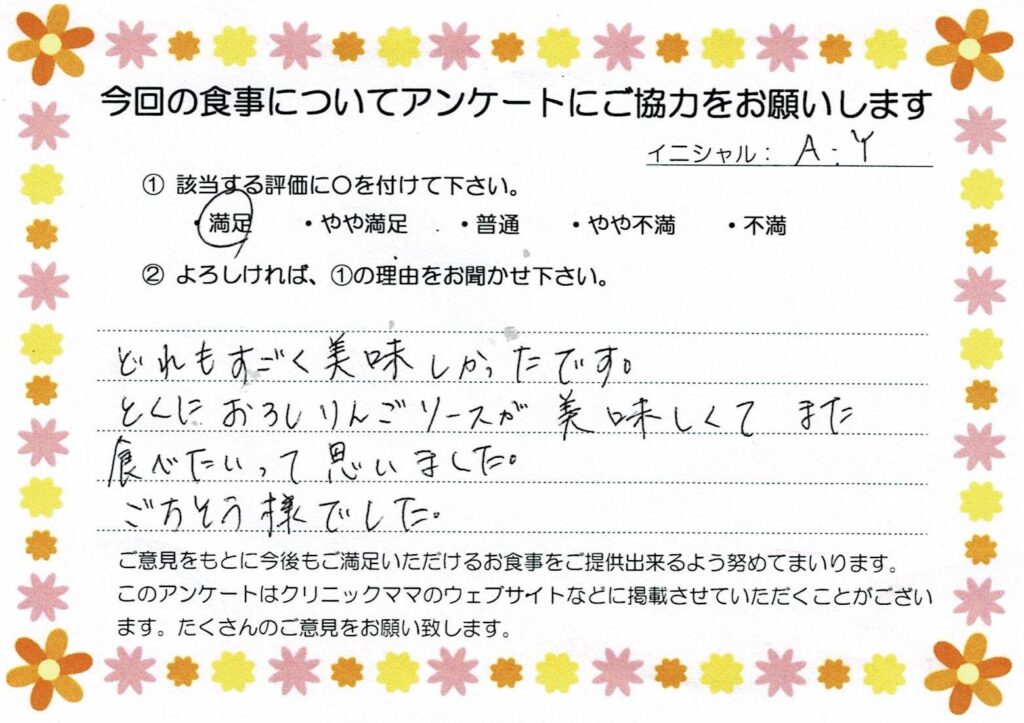 今回の食事についてアンケートにご協力をお願いします
イニシャル： A.Y
① 該当する評価に〇を付けて下さい。
・満足 ・やや満足 ・普通 ・やや不満 ・不満
② よろしければ、①の理由をお聞かせ下さい。
どれもすごく美味しかったです。
とくにおろしりんごソースが美味しくてまた
食べたいって思いました。
ごちそう様でした。
ご意見をもとに今後もご満足いただけるお食事をご提供出来るよう努めてまいります。
このアンケートはクリニックママのウェブサイトなどに掲載させていただくことがござい
ます。たくさんのご意見をお願い致します。